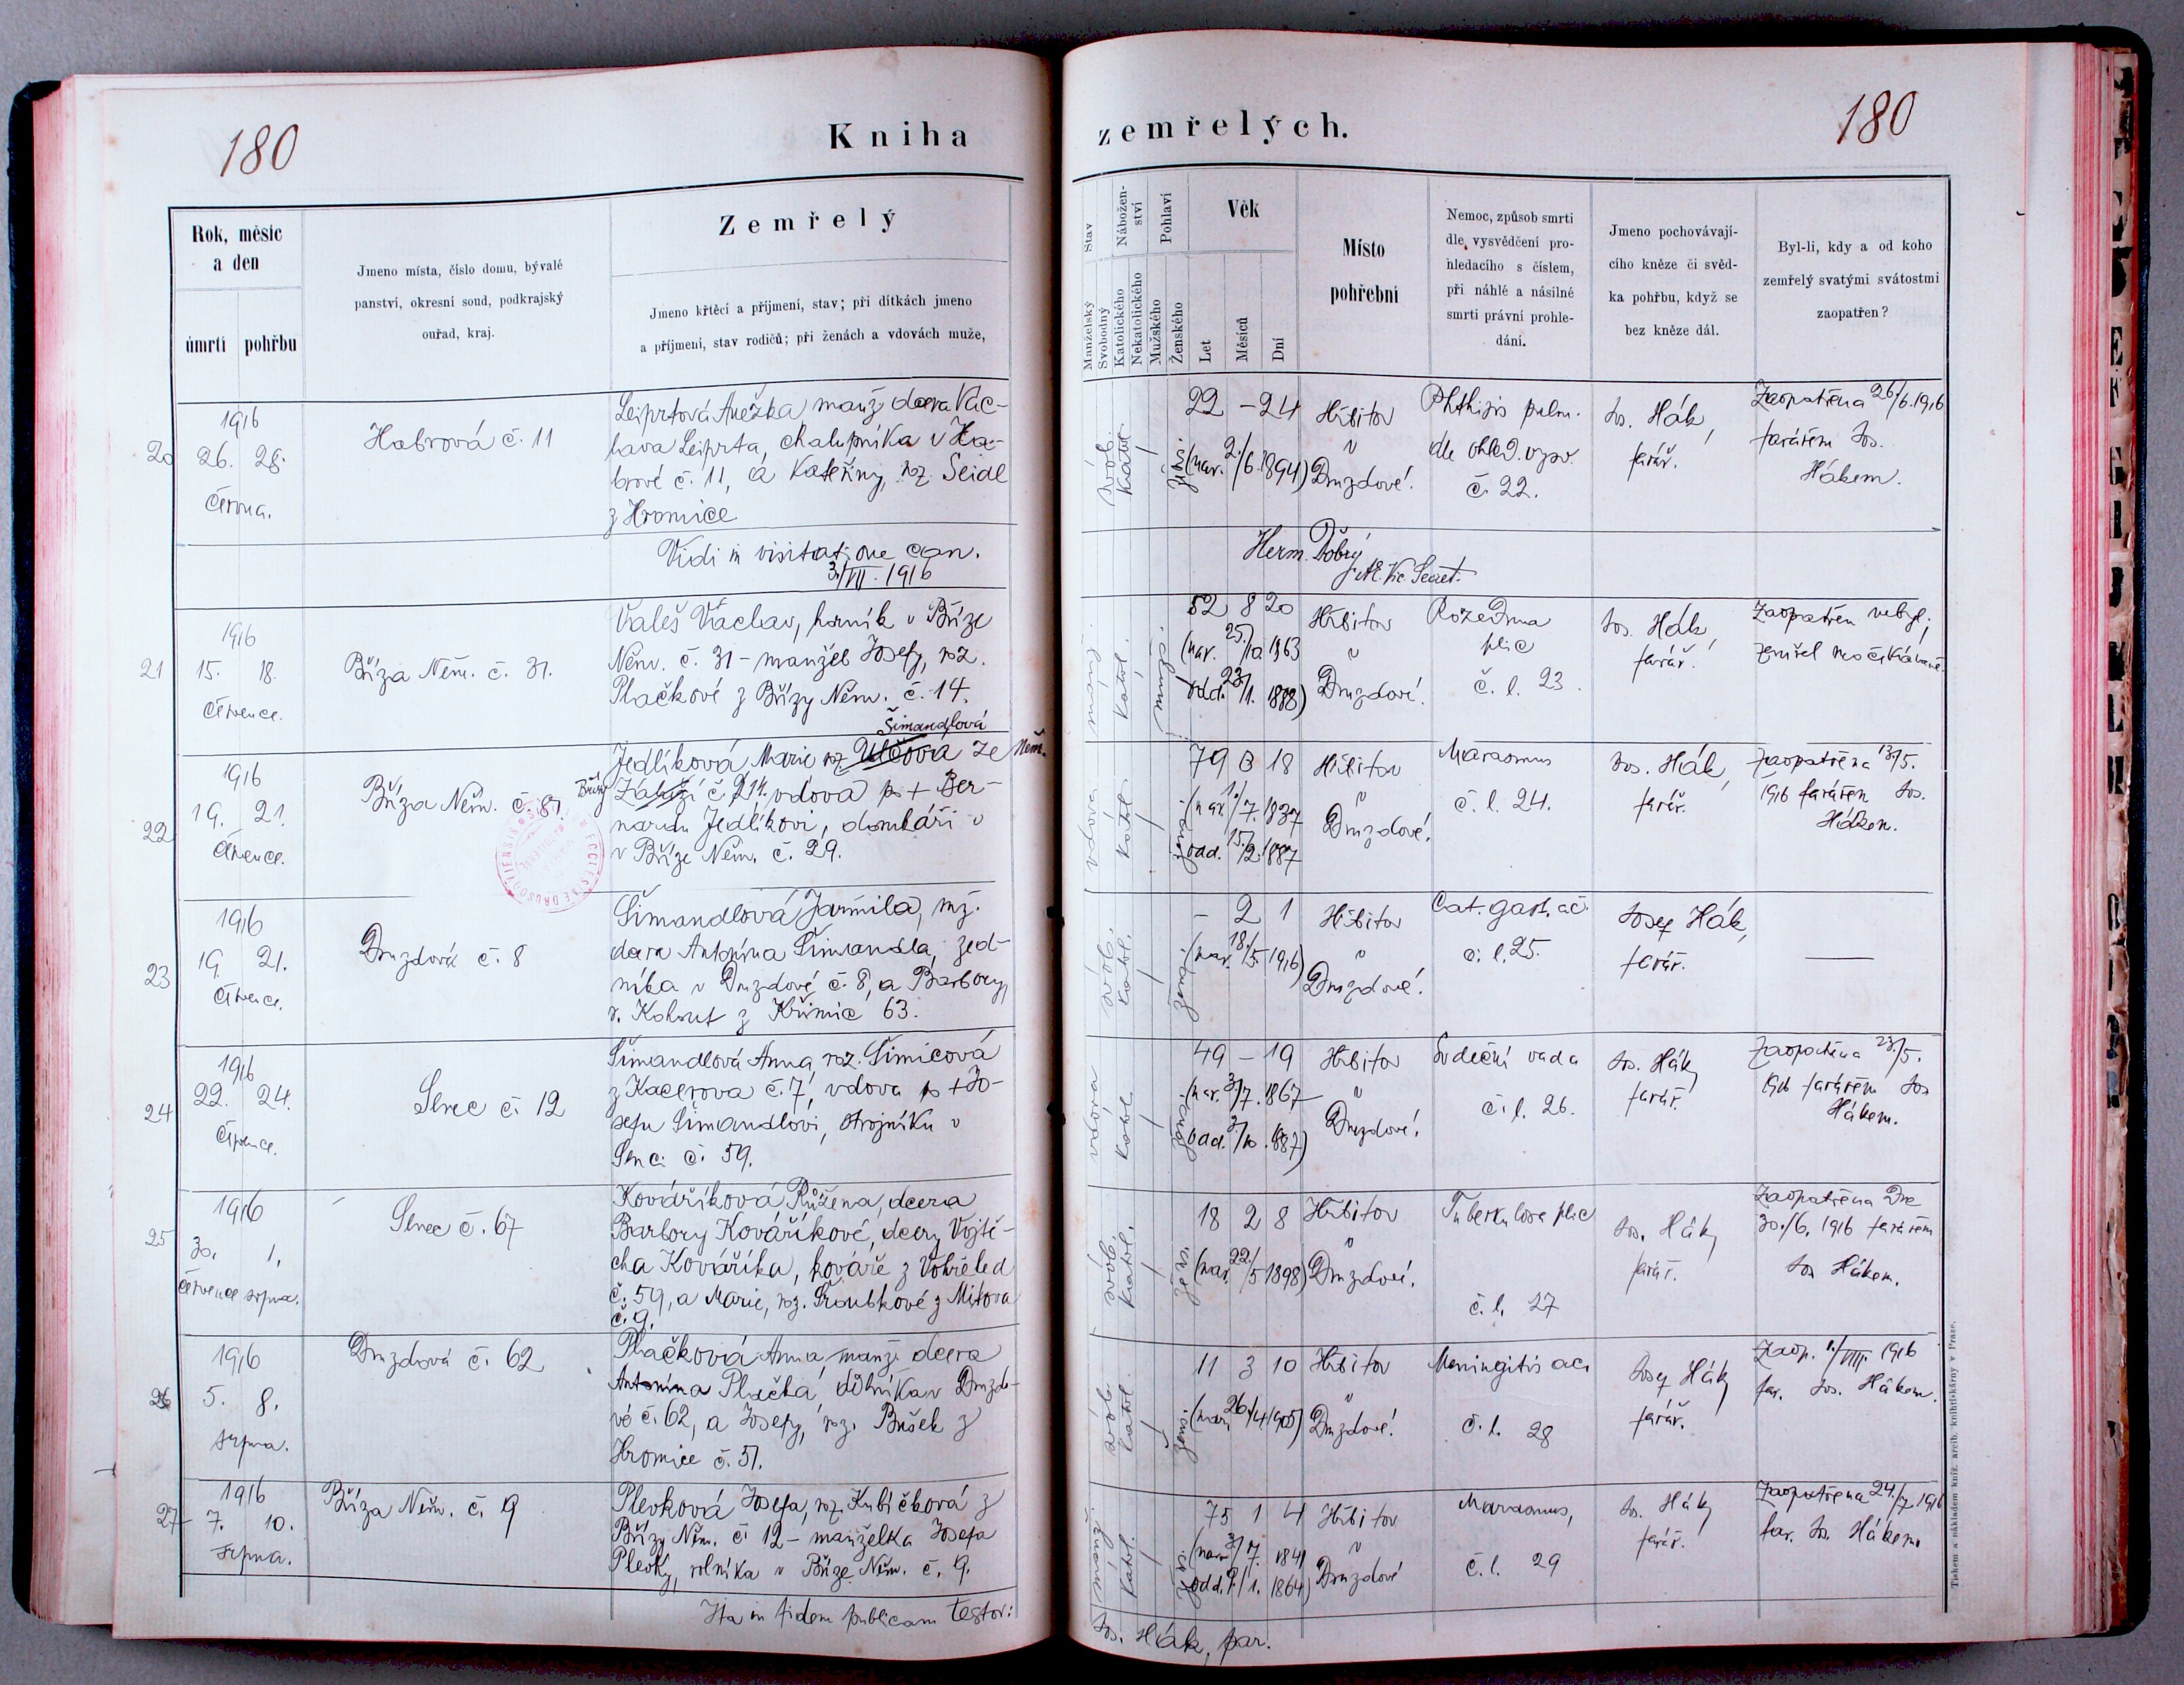 180
Kniha
Rok, měsíc
a den
úmrtí pohřbu
Jmeno místa, číslo domu, bývalé
panství, okresní soud, podkrajský
ouřad, kraj.
Zemřelý
Jmeno křtěcí a příjmení, stav; při dítkách jmeno
a příjmení, stav rodičů; při ženách a vdovách muže,
20
1916
26. 28.
června.
Habrová č. 11
Leiprtová Anežka manž. dcera Vác-
lava Leiprta, chalupníka v Ha-
brové č. 11, a Kateřiny, roz. Seidl
z Hromice
Vidi in visitatione can.
3./VII. 1916
21
1916
15. 18.
července.
Bříza Něm. č. 31.
Valeš Václav, horník v Bříze
Něm. č. 31 - manžel Josefy, roz.
Plačkové z Břízy Něm. č. 14.
22
1916
19. 21.
července.
Bříza Něm. č. 81.
Šimandlová
Jedlíková Marie roz. Ulčova ze Něm.
Břízy Záluží č. 14. vdova po + Ber-
nardu Jedlíkovi, domkáři v
v Bříze Něm. č. 29.
23
1916
19. 21.
července.
Druzdová č. 8
Šimandlová Jarmila, mž.
dcera Antonína Šimandla, zed-
níka v Druzdové č. 8, a Barbory,
r. Kohout z Křimic 63.
24
1916
22. 24.
července.
Senec č. 12
Šimandlová Anna, roz. Šimicová
z Kacerova č. 7, vdova po + Jo-
sefu Šimandlovi, strojníku v
Senci č. 59.
25
1916
30. 1.
července srpna.
Senec č. 67
Kováříková Růžena, dcera
Barbory Kováříkové, dcery Vojtě-
cha Kováříka, kováře z
č. 59, a Marie, roz. Šroubkové z Mítova
č. 9.
26
1916
5. 8.
srpna.
Druzdová č. 62
Plačková Anna manž. dcera
Antonína Plačka, dělníka v Druzdo-
vé č. 62, a Josefy, roz. Bušek z
Hromice č. 51.
27
1916
7. 10.
srpna.
Bříza Něm. č. 9
Plevková Josefa, roz. Kubíčková z
Břízy Něm. č. 12 - manželka Josefa
Plevky, rolníka v Bříze Něm. č. 9.
Ita in fidem publicam testor:
180
zemřelých.
Stav
Manželský
Svobodný
Nábožen-
ství
Katolického
Nekatolického
Pohlaví
Mužského
Ženského
Věk
Let
Měsíců
Dní
Místo
pohřební
Nemoc, způsob smrti
dle vysvědčení pro-
hledacího s číslem,
při náhlé a násilné
smrti právní prohle-
dání.
Jmeno pochovávají-
cího kněze či svěd-
ka pohřbu, když se
bez kněze dál.
Byl-li, kdy a od koho
zemřelý svatými svátostmi
zaopatřen?
svob.
katol.
ženský
22 - 24
(nar. 2./6. 1894)
Hřbitov
v
Druzdové.
Phthisis pulm.
dle ohled. vysv.
č. 22.
Jos. Hák,
farář.
Zaopatřena 26/6. 1916
farářem Jos.
Hákem.
Herm. Dobrý
Vic. Secret.
manž.
katol.
mužský
52 8 20
(nar. 25./10. 1863
odd. 23./1. 1888)
Hřbitov
v
Druzdové.
Rozedma
plic
č. l. 23.
Jos. Hák,
farář.
Zaopatřen nebyl;
zemřel neočekávaně.
vdova
katol.
ženský
79 0 18
(nar. 1./7. 1837
odd. 15./2. 1887
Hřbitov
v
Druzdové.
Marasmus
č. l. 24.
Jos. Hák,
farář.
Zaopatřena 13./5.
1916 farářem Jos.
Hákem.
svob.
katol.
ženský
- 2 1
(nar. 18./5. 1916)
Hřbitov
v
Druzdové.
Cat. gast. ac.
č. l. 25.
Josef Hák,
farář.
vdova
katol.
ženský
49 - 19
(nar. 3./7. 1867
odd. 3./10. 1887)
Hřbitov
v
Druzdové.
Srdeční vada
č. l. 26.
Jos. Hák,
farář.
Zaopatřena 23./5.
1916 farářem Jos.
Hákem.
svob.
katol.
ženský
18 2 8
(nar. 22./5 1898)
Hřbitov
v
Druzdové.
Tuberkulosa plic
č. l. 27
Jos. Hák,
farář.
Zaopatřena dne
30./6. 1916 farářem
Jos. Hákem.
svob.
katol.
ženský
11 3 10
(nar. 26./4. 1905)
Hřbitov
v
Druzdové.
Meningitis ac.
č. l. 28
Josef Hák,
farář.
Zaop. 1./VIII. 1916
far. Jos. Hákem.
manž.
katol.
ženský
75 1 4
(nar. 3./7. 1841
odd. 9./1. 1864)
Hřbitov
v
Druzdové
Marasmus,
č. l. 29
Jos. Hák,
farář.
Zaopatřena 24./7. 1916
far. Jos. Hákem.
Jos. Hák, par.
Tiskem a nákladem kníž. arcib. knihtiskárny v Praze.